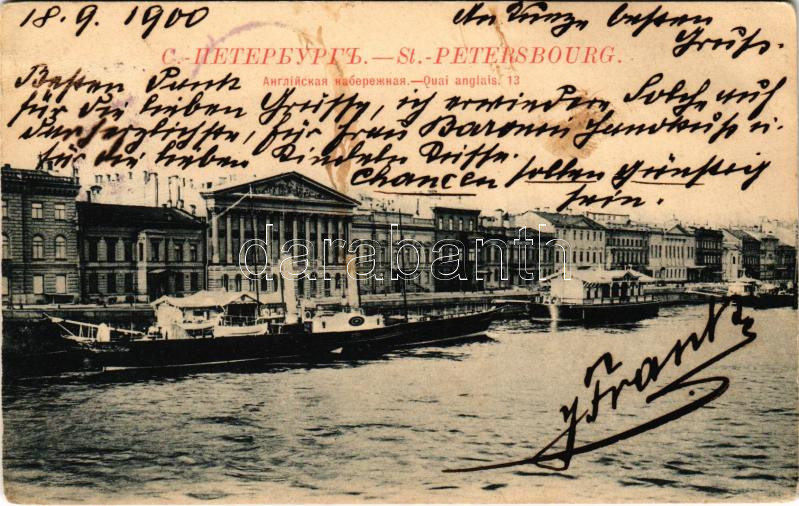 18. 9. 1900
An Kunze besten
Gruss.
С.-ПЕТЕРБУРГЪ. — St.-PETERSBOURG.
Англійская набережная. — Quai anglais. 13
Besten Dank
für die lieben Grüsse, ich erwiedere solche auf
, für Frau Baronin Handkuß u.
für die lieben Kindeln Küsse.
Chancen sollen günstig
sein.
darabanth
Frank